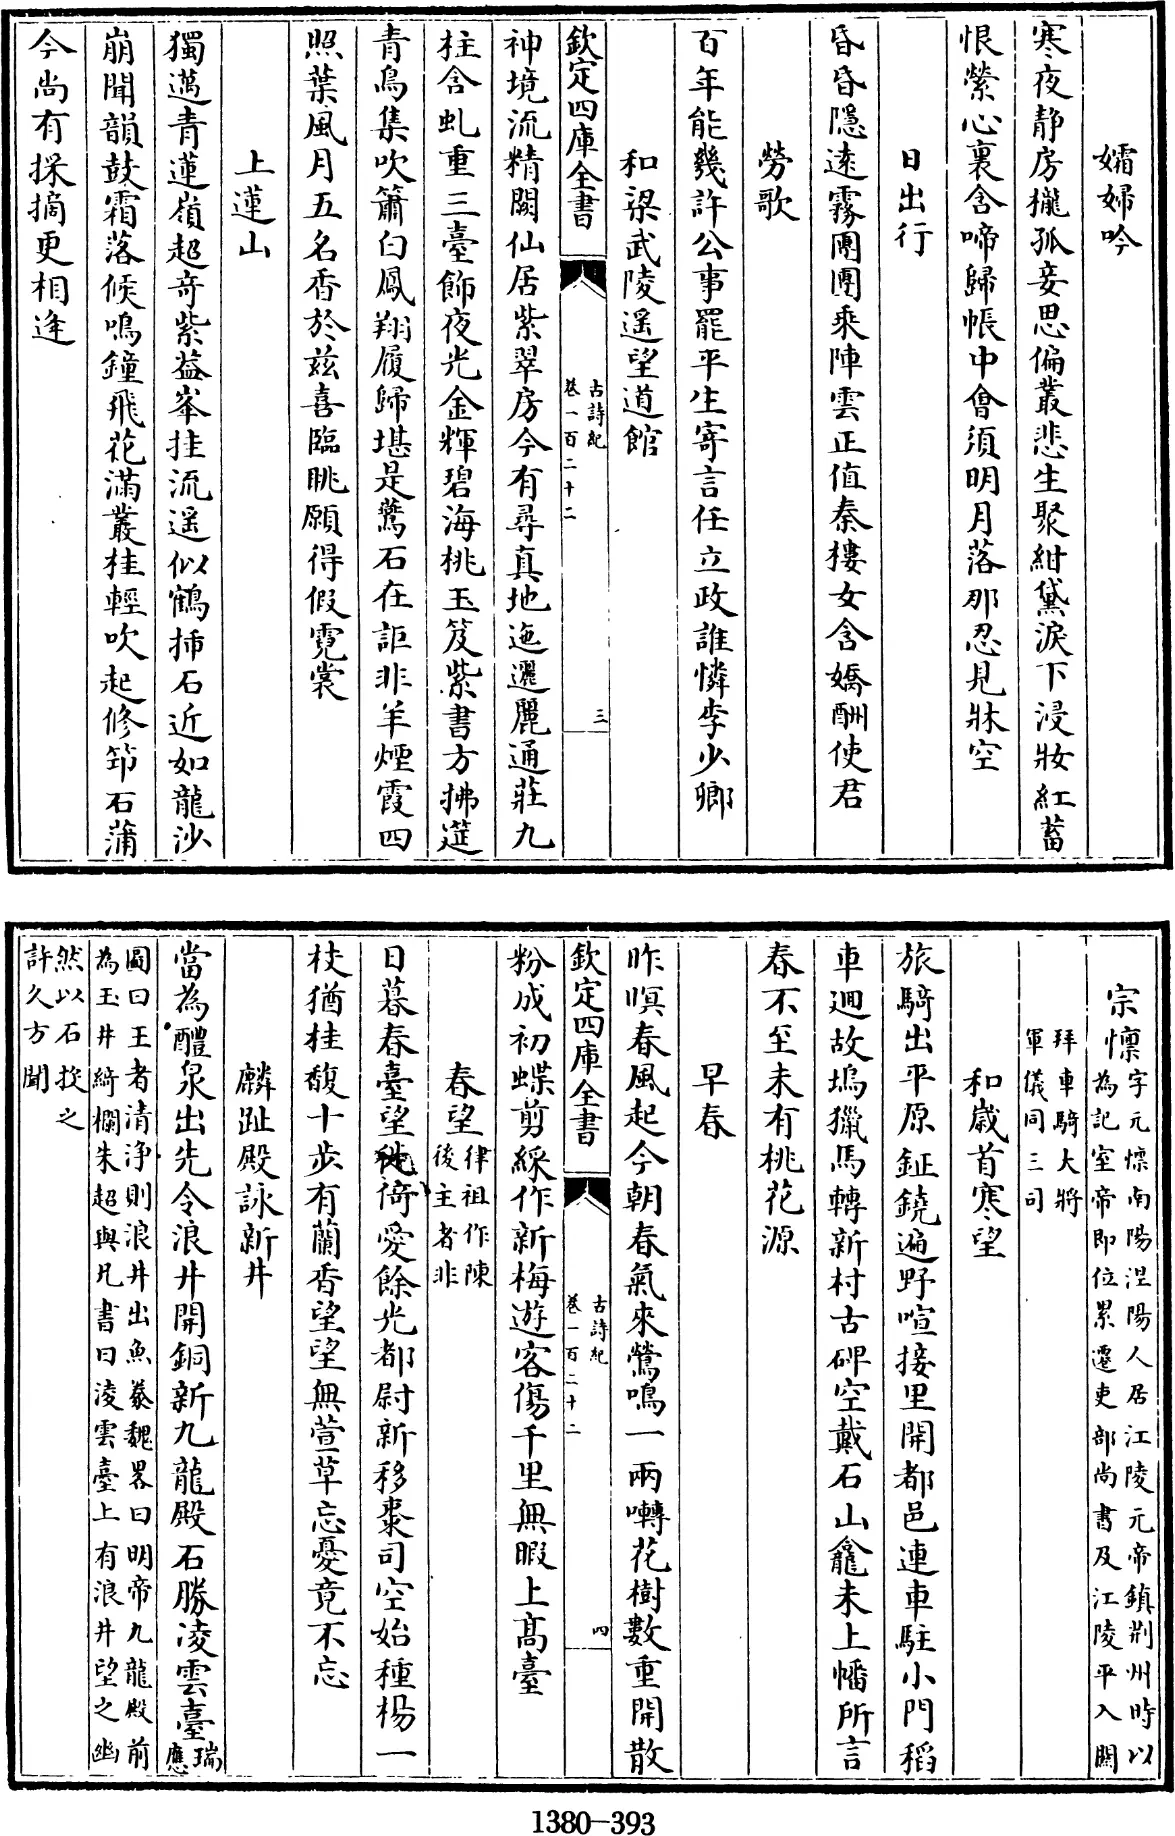 孀婦吟
寒夜静房櫳孤妾思偏叢悲生聚紺黛淚下浸妝紅蓄
恨縈心裏含啼歸帳中會須明月落那忍見牀空
日出行
昏昏隱逺霧團團乘陣雲正值秦樓女含嬌酬使君
勞歌
百年能幾許公事罷平生寄言任立政誰憐李少卿
和梁武陵遥望道館
欽定四庫全書
古詩紀
卷一百二十二
三
神境流精闕仙居紫翠房今有尋真地迤邐麗通莊九
柱含虬重三臺飾夜光金輝碧海桃玉笈紫書方拂筵
青鳥集吹簫白鳳翔履歸堪是鷰石在詎非羊煙霞四
照葉風月五名香於兹喜臨眺願得假霓裳
上蓮山
獨邁青蓮嶺超竒紫葢峯挂流遥似鶴揷石近如龍沙
崩聞韻鼓霜落候鳴鐘飛花滿叢桂輕吹起修筇石蒲
今尚有採摘更相逢
宗懍字元懍南陽涅陽人居江陵元帝鎮荆州時以
為記室帝即位累遷吏部尚書及江陵平入闗
拜車騎大將
軍儀同三司
和歲首寒望
旅騎出平原鉦鐃遍野喧接里開都邑連車駐小門稻
車迴故塢獵馬轉新村古碑空戴石山龕未上幡所言
春不至未有桃花源
早春
昨暝春風起今朝春氣來鶯鳴一兩囀花樹數重開散
欽定四庫全書
古詩紀
卷一百二十二
四
粉成初蝶剪綵作新梅遊客傷千里無暇上髙臺
春望律祖作陳
後主者非
日暮春臺望徙倚愛餘光都尉新移棗司空始種楊一
枝猶桂馥十步有蘭香望望無萱草忘憂竟不忘
麟趾殿詠新井
當為醴泉出先令浪井開銅新九龍殿石勝凌雲臺瑞
應
圖曰王者清浄則浪井出魚豢魏畧曰明帝九龍殿前
為玉井綺欄朱超與凡書曰淩雲臺上有浪井望之幽
然以石投之
許久方聞
1380-393